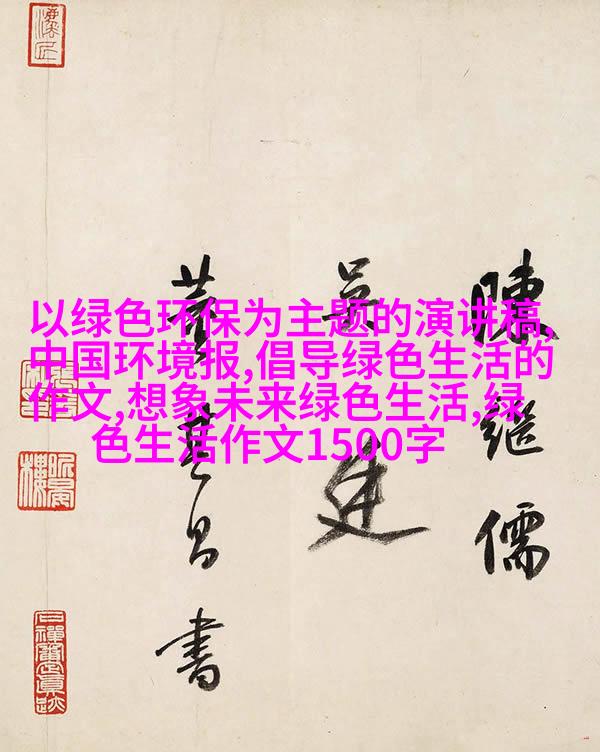 以绿色环保为主题的演讲稿,
中国环境报,倡导绿色生活的
作文,想象未来绿色生活,绿
色生活作文1500字
陳繼儒
吳廷
董其昌書